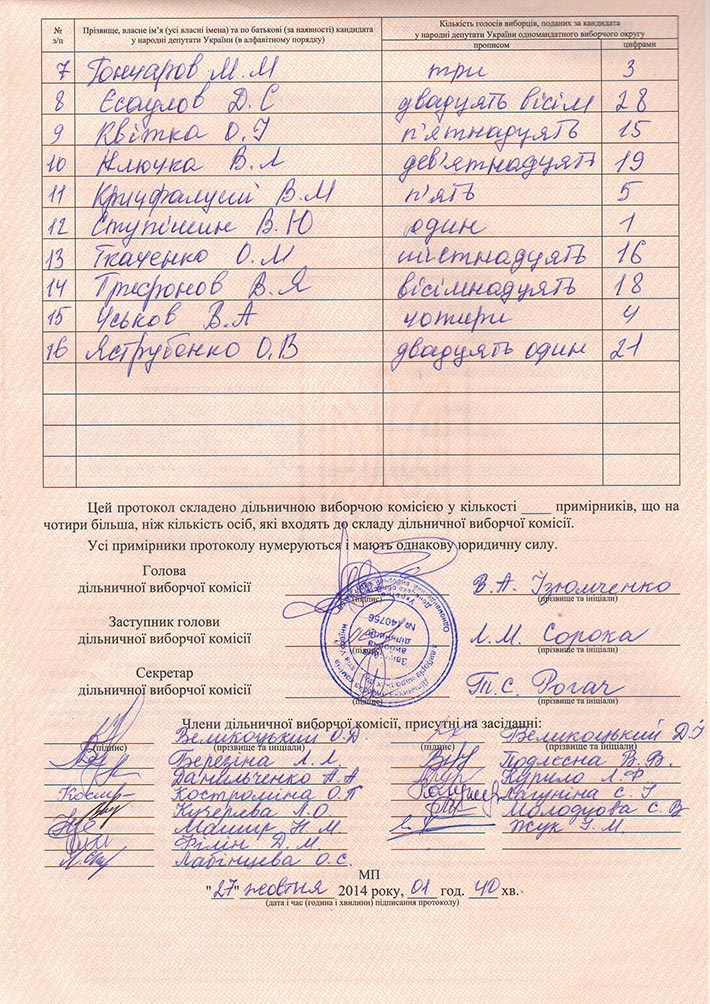 № з/п Прізвище, власне ім’я (усі власні імена) та по батькові (за наявності) кандидата у народні депутати України (в алфавітному порядку) Кількість голосів виборців, поданих за кандидата у народні депутати України одномандатного виборчого округу
прописом цифрами
7 Гончаров М.М три 3
8 Єсаулов Д.С двадцять вісім 28
9 Квітка О.І п'ятнадцять 15
10 Ключка В.Л дев'ятнадцять 19
11 Кричфалуший В.М п'ять 5
12 Ступішин В.Ю один 1
13 Ткаченко О.М шістнадцять 16
14 В.Я вісімнадцять 18
15 Уськов В.А чотири 4
16 Яструбенко О.В двадцять один 21
Цей протокол складено дільничною виборчою комісією у кількості ____ примірників, що на
чотири більша, ніж кількість осіб, які входять до складу дільничної виборчої комісії.
Усі примірники протоколу нумеруються і мають однакову юридичну силу.
Голова
дільничної виборчої комісії В.А. Ізюмченко
(підпис) (прізвище та ініціали)
Заступник голови
дільничної виборчої комісії Л.М. Сорока
(підпис) (прізвище та ініціали)
Секретар
дільничної виборчої комісії Т.С. Рогач
(прізвище та ініціали)
№ 140756
Члени дільничної виборчої комісії, присутні на засіданні:
Великоцький О.Д. Великоцький Д.І
(підпис) (прізвище та ініціали) (підпис) (прізвище та ініціали)
Березіна Л.Л. Подлєсна В.В.
Данильченко А.А Курило Л.Ф.
Костроміна О.П Лагуніна С.І
Кучерева Л.О. Молодцова Є.В
Машир Н.М. Жук І.М.
Філін Д.М.
Лабінцева О.С.
МП
"27" жовтня 2014 року, 01 год. 40 хв.
(дата і час (година і хвилини) підписання протоколу)